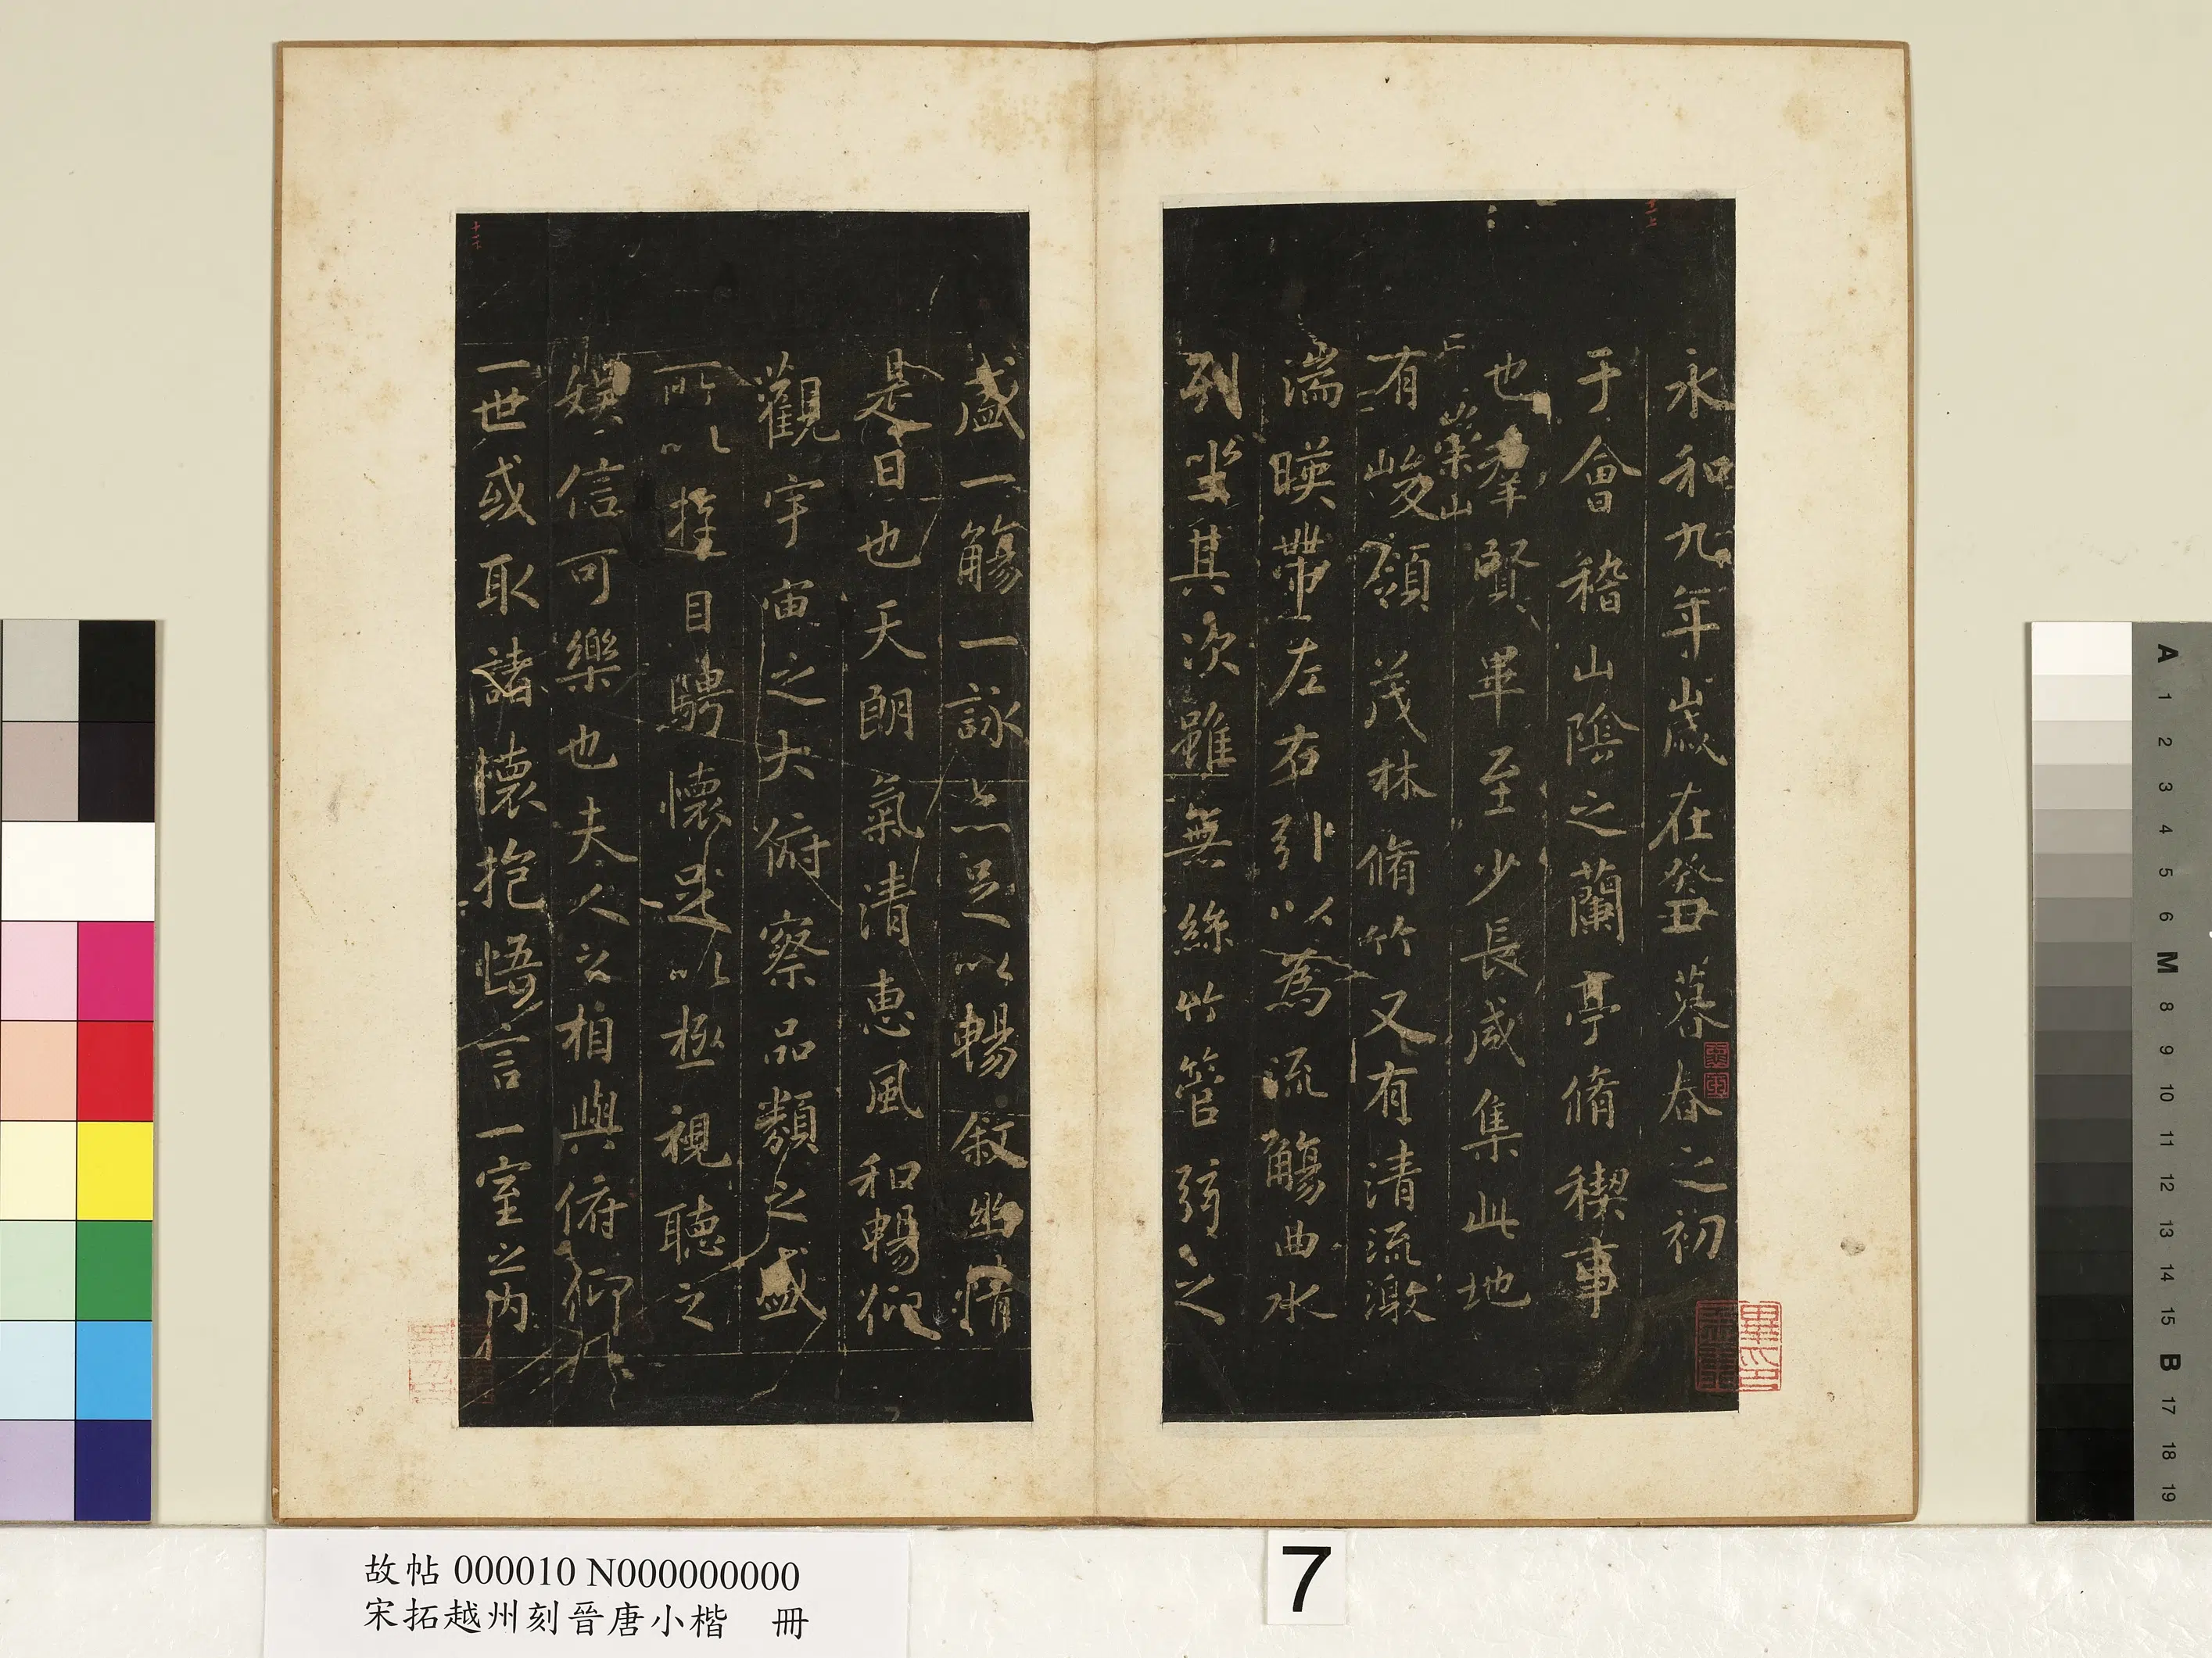 永和九年歲在癸丑暮春之初
于會稽山陰之蘭亭脩稧事
也羣賢畢至少長咸集此地
崇山
有峻領茂林脩竹又有清流激
湍暎帶左右引以為流觴曲水
列坐其次雖無絲竹管弦之
盛一觴一詠亦足以暢敘幽情
是日也天朗氣清惠風和暢仰
觀宇宙之大俯察品類之盛
所以遊目騁懷足以極視聽之
娛信可樂也夫人之相與俯仰
一世或取諸懷抱悟言一室之內
故帖 000010 N000000000
宋拓越州刻晉唐小楷 冊
7
A
1
2
3
4
5
6
M
8
9
10
11
12
13
14
15
B
17
18
19